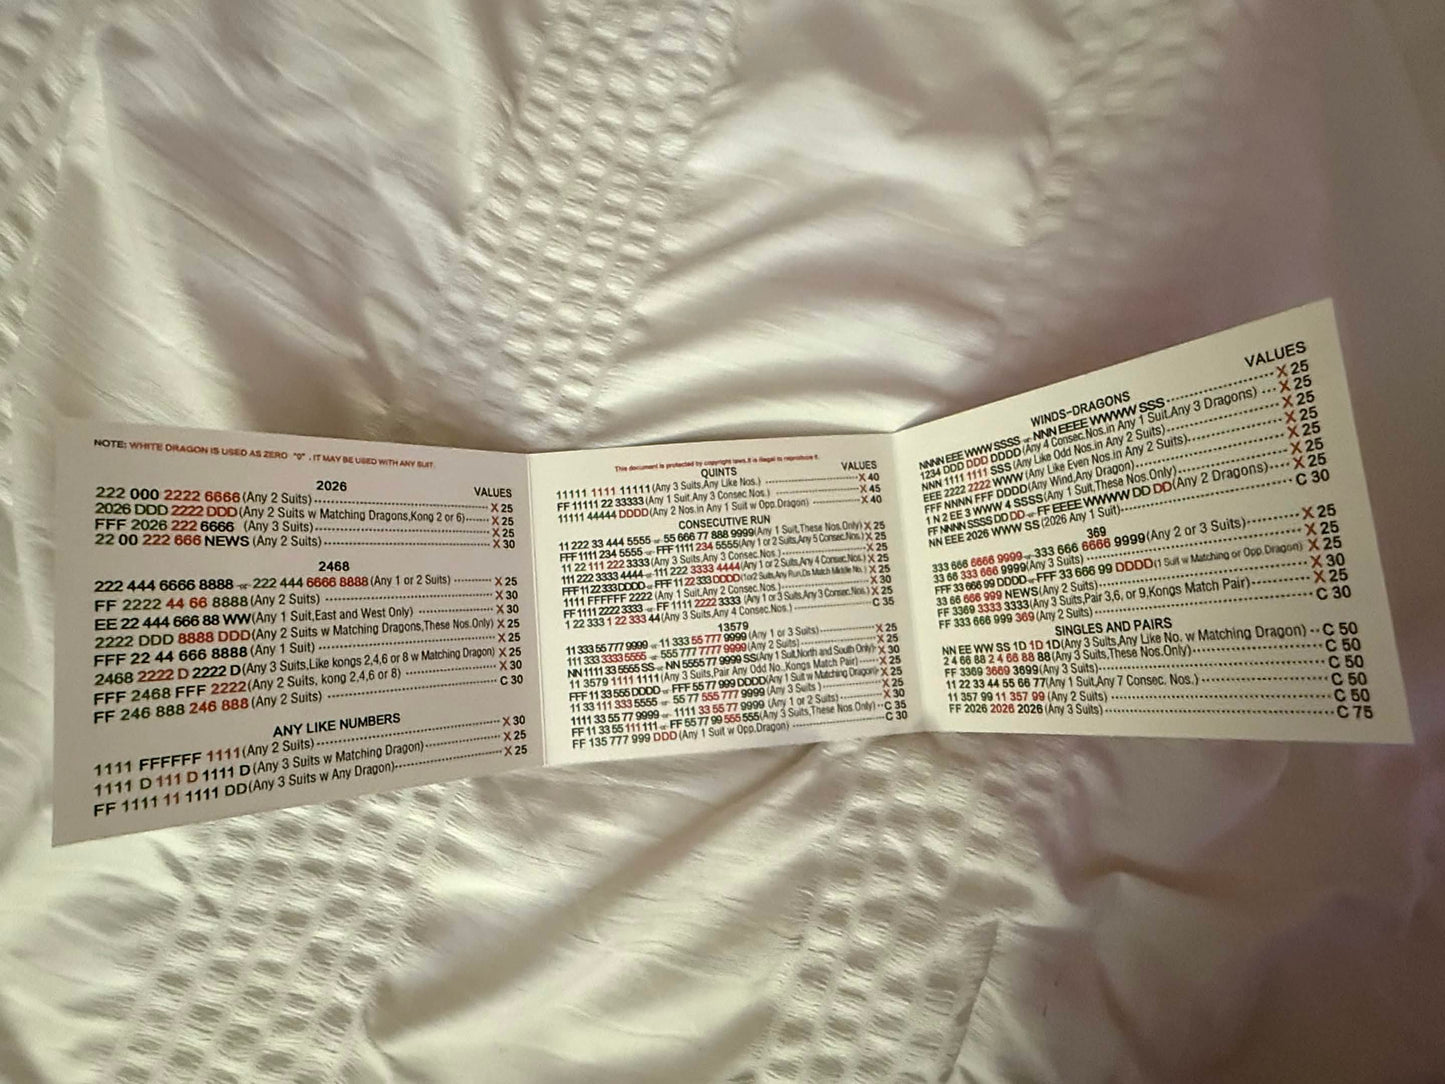 NOTE: WHITE DRAGON IS USED AS ZERO "0". IT MAY BE USED WITH ANY SUIT.
2026
VALUES
222 000 2222 6666 (Any 2 Suits) X 25
2026 DDD 2222 DDD (Any 2 Suits w Matching Dragons, Kong 2 or 6) X 25
FFF 2026 222 6666 (Any 3 Suits) X 25
22 00 222 666 NEWS (Any 2 Suits) X 30
2468
222 444 6666 8888 or 222 444 6666 8888 (Any 1 or 2 Suits) X 25
FF 2222 44 66 8888 (Any 2 Suits) X 30
EE 22 444 666 88 WW (Any 1 Suit, East and West Only) X 30
2222 DDD 8888 DDD (Any 2 Suits w Matching Dragons, These Nos. Only) X 25
FFF 22 44 666 8888 (Any 1 Suit) X 25
2468 2222 D 2222 D (Any 3 Suits, Like kongs 2,4,6 or 8 w Matching Dragon) X 25
FFF 2468 FFF 2222 (Any 2 Suits, kong 2,4,6 or 8) X 30
FF 246 888 246 888 (Any 2 Suits) C 30
ANY LIKE NUMBERS
1111 FFFFFF 1111 (Any 2 Suits) X 30
1111 D 111 D 1111 D (Any 3 Suits w Matching Dragon) X 25
FF 1111 11 1111 DD (Any 3 Suits w Any Dragon) X 25
This document is protected by copyright laws. It is illegal to reproduce it.
QUINTS
VALUES
11111 1111 11111 (Any 3 Suits, Any Like Nos.) X 40
FF 11111 22 33333 (Any 1 Suit, Any 3 Consec. Nos.) X 45
11111 44444 DDDD (Any 2 Nos. in Any 1 Suit w Opp. Dragon) X 40
CONSECUTIVE RUN
11 222 33 444 5555 or 55 666 77 888 9999 (Any 1 Suit, These Nos. Only) X 25
FFF 1111 234 5555 or FFF 1111 234 5555 (Any 1 or 2 Suits, Any 5 Consec. Nos.) X 25
11 22 111 222 3333 (Any 3 Suits, Any 3 Consec. Nos.) X 25
111 222 3333 4444 or 111 222 3333 4444 (Any 1 or 2 Suits, Any 4 Consec. Nos.) X 25
FFF 11 22 333 DDDD or FFF 11 22 333 DDDD (1 or 2 Suits, Any Run, Ds Match Middle No.) X 25
1111 FFFFFF 2222 (Any 1 Suit, Any 2 Consec. Nos.) X 30
FF 1111 2222 3333 or FF 1111 2222 3333 (Any 1 or 3 Suits, Any 3 Consec. Nos.) X 25
1 22 333 1 22 333 44 (Any 3 Suits, Any 4 Consec. Nos.) C 35
13579
11 333 55 777 9999 or 11 333 55 777 9999 (Any 1 or 3 Suits) X 25
111 333 3333 5555 or 555 777 7777 9999 (Any 2 Suits) X 25
NN 1111 33 5555 SS or NN 5555 77 9999 SS (Any 1 Suit, North and South Only) X 30
11 3579 1111 1111 (Any 3 Suits, Pair Any Odd No., Kongs Match Pair) X 25
FFF 11 33 555 DDDD or FFF 55 77 999 DDDD (Any 1 Suit w Matching Dragon) X 25
11 33 111 333 5555 or 55 77 555 777 9999 (Any 3 Suits) X 25
1111 33 55 77 9999 or 1111 33 55 77 9999 (Any 1 or 2 Suits) X 30
FF 11 33 55 111 111 or FF 55 77 99 555 555 (Any 3 Suits, These Nos. Only) C 35
FF 135 777 999 DDD (Any 1 Suit w Opp. Dragon) C 30
WINDS-DRAGONS
VALUES
NNNN EEE WWW SSSS or NNN EEEE WWWW SSS X 25
1234 DDD DDD DDDD (Any 4 Consec. Nos. in Any 1 Suit, Any 3 Dragons) X 25
NNN 1111 1111 SSS (Any Like Odd Nos. in Any 2 Suits) X 25
EEE 2222 2222 WWW (Any Like Even Nos. in Any 2 Suits) X 25
FFF NNNN FFF DDDD (Any Wind, Any Dragon) X 25
1 N 2 EE 3 WWW 4 SSSS (Any 1 Suit, These Nos. Only) X 25
FF NNNN SSSS DD DD or FF EEEE WWWW DD DD (Any 2 Dragons) X 25
NN EEE 2026 WWW SS (2026 Any 1 Suit) C 30
369
333 666 6666 9999 or 333 666 6666 9999 (Any 2 or 3 Suits) X 25
33 66 333 666 9999 (Any 3 Suits) X 25
FFF 33 666 99 DDDD or FFF 33 666 99 DDDD (1 Suit w Matching or Opp. Dragon) X 25
33 66 666 999 NEWS (Any 2 Suits) X 30
FF 3369 3333 3333 (Any 3 Suits, Pair 3,6, or 9, Kongs Match Pair) X 25
FF 333 666 999 369 (Any 2 Suits) C 30
SINGLES AND PAIRS
NN EE WW SS 1D 1D 1D (Any 3 Suits, Any Like No. w Matching Dragon) C 50
2 4 66 88 2 4 66 88 88 (Any 3 Suits, These Nos. Only) C 50
FF 3369 3669 3699 (Any 3 Suits) C 50
11 22 33 44 55 66 77 (Any 1 Suit, Any 7 Consec. Nos.) C 50
11 357 99 11 357 99 (Any 2 Suits) C 50
FF 2026 2026 2026 (Any 3 Suits) C 75